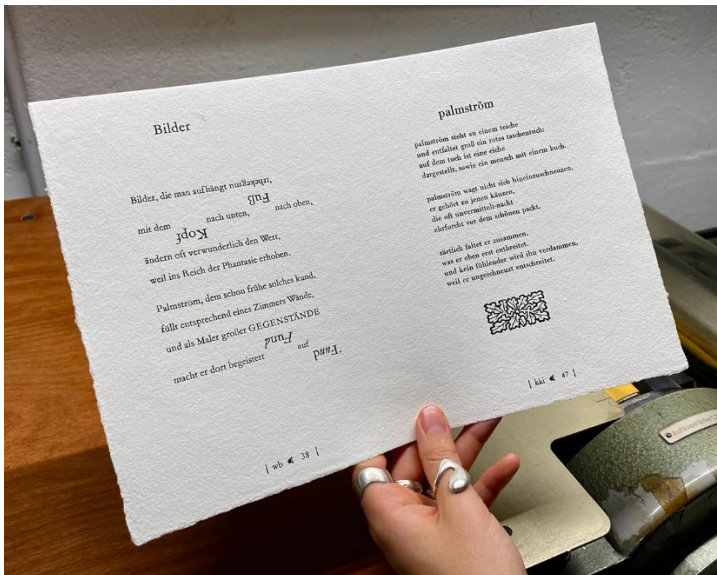 Bilder
Bilder, die man aufhängt umgekehrt,
mit dem Kopf nach unten, Fuß nach oben,
ändern oft verwunderlich den Wert,
weil ins Reich der Phantasie erhoben.
Palmström, dem schon frühe solches kund,
füllt entsprechend eines Zimmers Wände,
und als Maler großer GEGENSTÄNDE
macht er dort begeistert Fund auf Fund.
| wb 38 |
palmström
palmström steht an einem teiche
und entfaltet groß ein rotes taschentuch:
auf dem tuch ist eine eiche
dargestellt, sowie ein mensch mit einem buch.
palmström wagt nicht sich hineinzuschneuzen,
er gehört zu jenen käuzen,
die oft unvermittelt-nackt
ehrfurcht vor dem schönen packt.
zärtlich faltet er zusammen,
was er eben erst entbreitet.
und kein fühlender wird ihn verdammen,
weil er ungeschneuzt entschreitet.
| kki 47 |